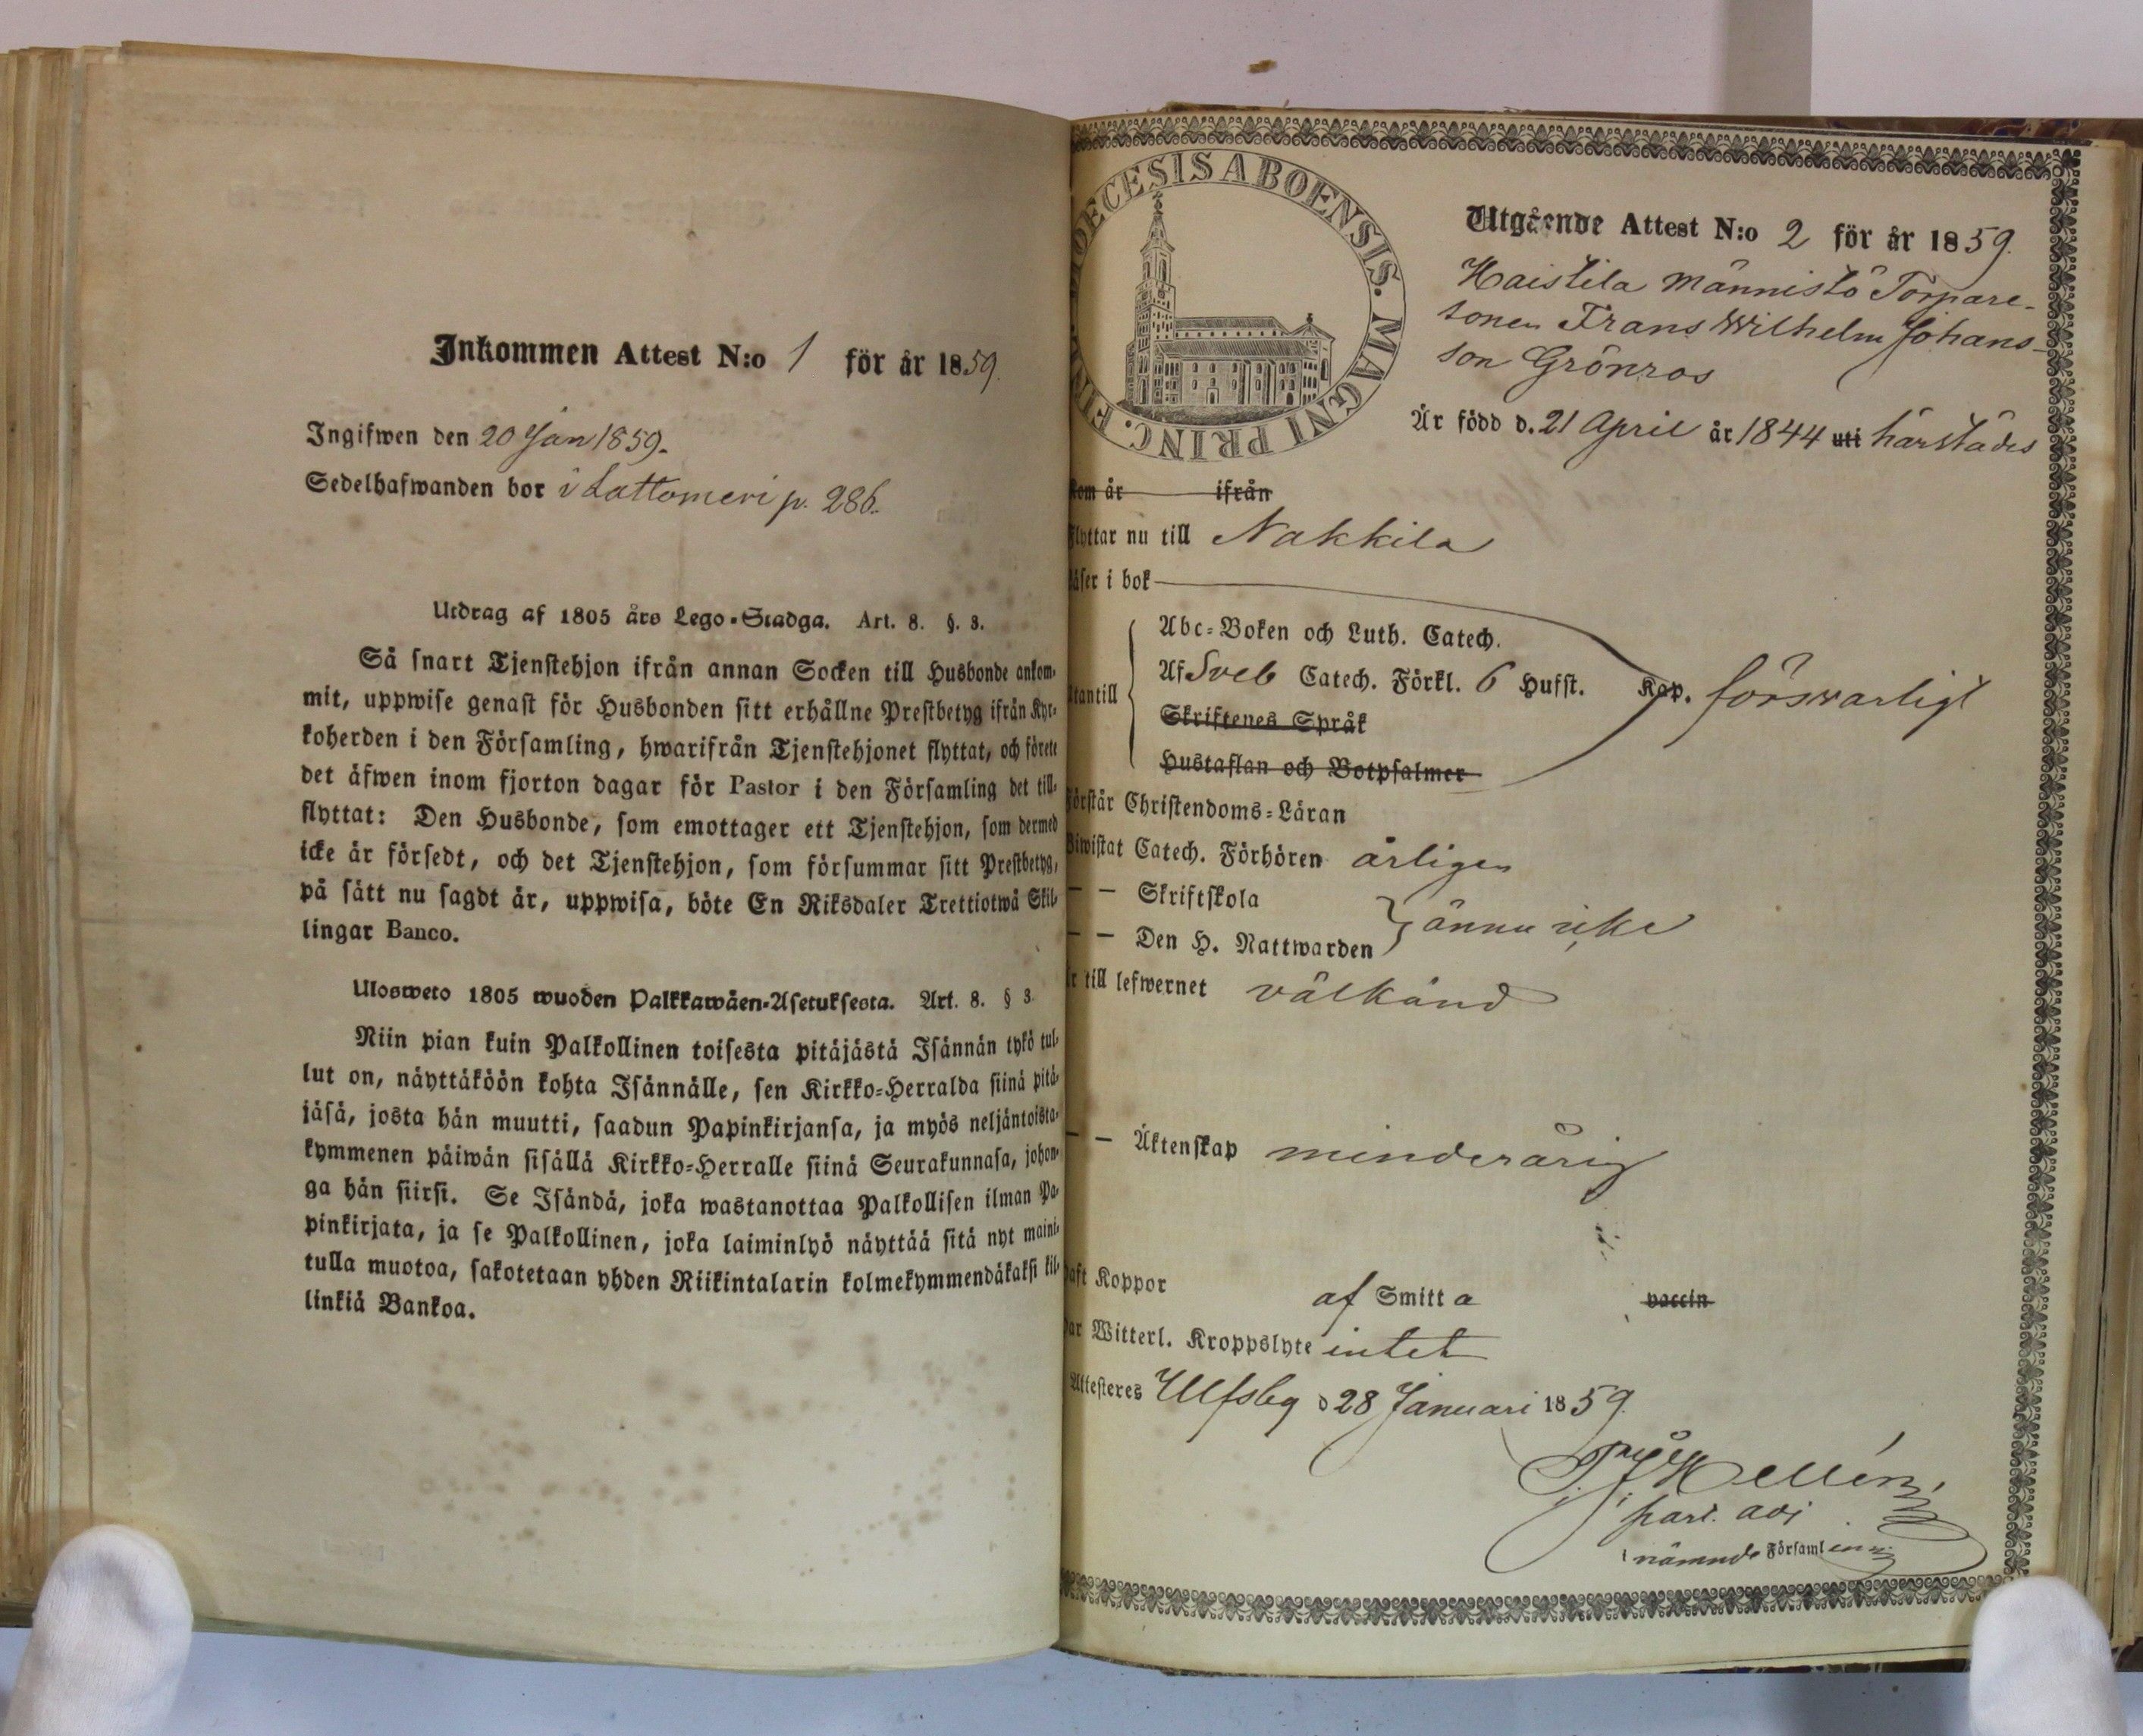 Inkommen Attest N:o 1 för år 1859.
Ingifwen den 20 Jan 1859.
Sedelhafwanden bor i Lattomeri p. 286.
Utdrag af 1805 års Lego-Stadga. Art. 8. §. 3.
Så snart Tjenstehjon ifrån annan Socken till Husbonde ankom-
mit, uppwise genast för Husbonden sitt erhållne Prestbetyg ifrån Kyr-
koherden i den Församling, hwarifrån Tjenstehjonet flyttat, och förete
det äfwen inom fjorton dagar för Pastor i den Församling det till-
flyttat: Den Husbonde, som emottager ett Tjenstehjon, som dermed
icke är försedt, och det Tjenstehjon, som försummar sitt Prestbetyg,
på sätt nu sagdt är, uppwisa, böte En Riksdaler Trettiotwå Skil-
lingar Banco.
Ulosweto 1805 wuoden Palkkawäen-Asetuksesta. Art. 8. § 3.
Niin pian kuin Palkollinen toisesta pitäjästä Isännän tykö tul-
lut on, näyttäköön kohta Isännälle, sen Kirkko-Herralda siinä pitä-
jäsä, josta hän muutti, saadun Papinkirjansa, ja myös neljäntoista-
kymmenen päiwän sisällä Kirkko-Herralle siinä Seurakunnasa, johon-
ga hän siirsi. Se Isändä, joka wastanottaa Palkollisen ilman Pa-
pinkirjata, ja se Palkollinen, joka laiminlyö näyttää sitä nyt maini-
tulla muotoa, sakotetaan yhden Riikintalarin kolmekymmendäkaksi kil-
linkiä Bankoa.
DIOECESIS ABOENSIS. MAGNI PRINC. FIN
Utgående Attest N:o 2 för år 1859.
Haistila Männistö Torpare-
sonen Frans Wilhelm Johans-
son Grönroos
Är född d. 21 April år 1844 uti härstädes
kom år ifrån
Flyttar nu till Nakkila
Läser i bok
Abc-Boken och Luth. Catech.
Utantill Af Sveb Catech. Förkl. 6 Hufst. Kap. försvarligt
Skriftenes Språk
Hustaflan och Botpsalmer
Förstår Christendoms-Läran
Biwistat Catech. Förhören årligen
— — Skriftskola
— — Den H. Nattwarden } ännu icke
Är till lefwernet välkänd
— — Äktenskap minderårig
Haft Koppor af Smitta vaccin
Har Witterl. Kroppslyte intet
Attesteres Ulfsby d 28 Januari 1859.
Hellén,
part. adj
i nämnde Församling